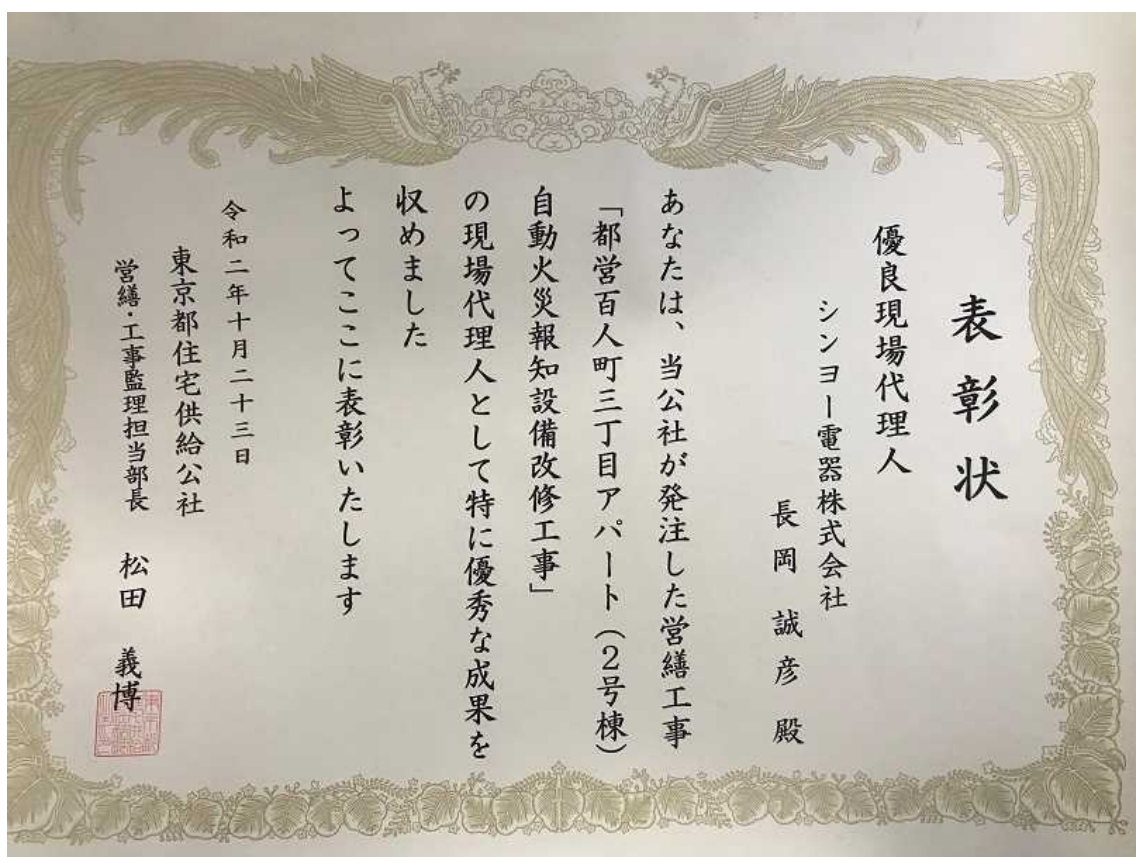 表彰状
優良現場代理人
シンヨー電器株式会社
長岡誠彦殿
あなたは、当公社が発注した営繕工事
「都営百人町三丁目アパート(2号棟)
自動火災報知設備改修工事」
の現場代理人として特に優秀な成果を
収めました
よってここに表彰いたします
令和二年十月二十三日
東京都住宅供給公社
営繕・工事監理担当部長 松田 義博